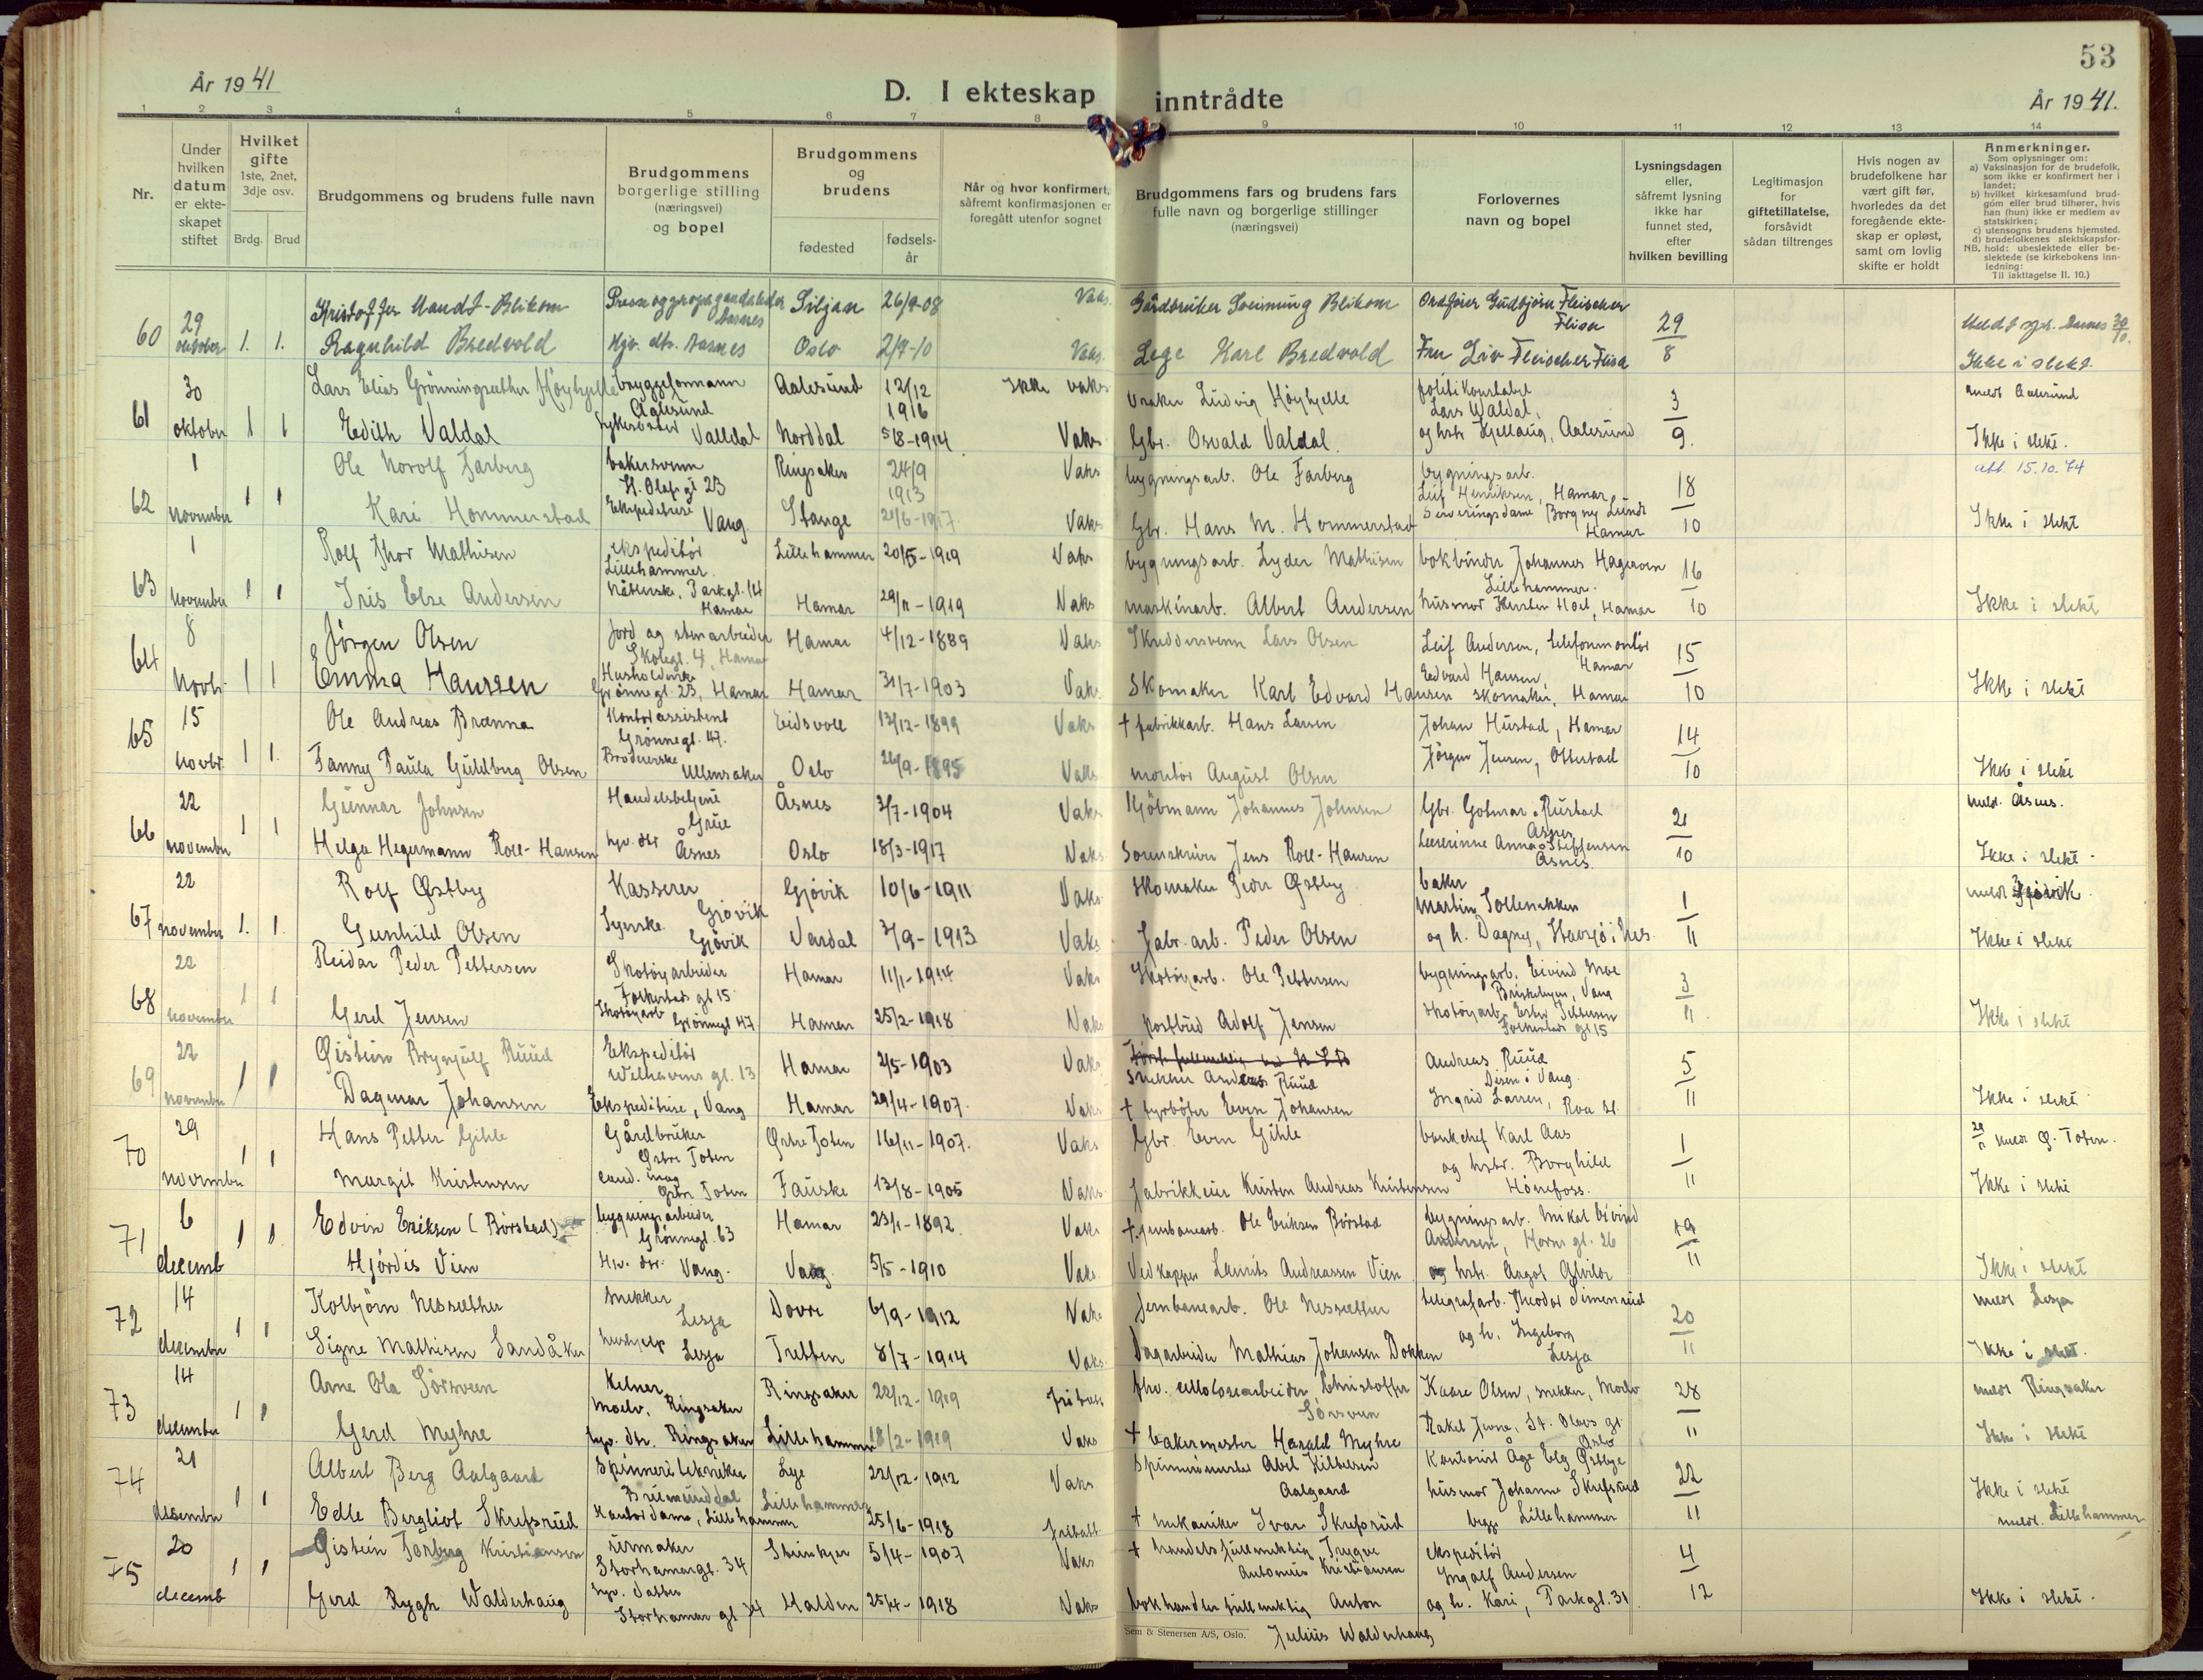 53
År 1941
D. I ekteskap inntrådte
År 1941.
1 2 3 4 5 6 7 8 9 10 11 12 13 14
Nr.
Under hvilken datum er ekteskapet stiftet
Hvilket gifte 1ste, 2net, 3dje osv.
Brdg. Brud
Brudgommens og brudens fulle navn
Brudgommens borgerlige stilling (næringsvei) og bopel
Brudgommens og brudens
fødested
fødselsår
Når og hvor konfirmert, såfremt konfirmasjonen er foregått utenfor sognet
Brudgommens fars og brudens fars fulle navn og borgerlige stillinger (næringsvei)
Forlovernes navn og bopel
Lysningsdagen eller, såfremt lysning ikke har funnet sted, efter hvilken bevilling
Legitimasjon for giftetillatelse, forsåvidt sådan tiltrenges
Hvis nogen av brudefolkene har vært gift før, hvorledes da det foregående ekteskap er opløst, samt om lovlig skifte er holdt
Anmerkninger.
Som oplysninger om:
a) Vaksinasjon for de brudefolk, som ikke er konfirmert her i landet;
b) hvilket kirkesamfund brudgom eller brud tilhører, hvis han (hun) ikke er medlem av statskirken;
c) utensogns brudens hjemsted.
d) brudefolkenes slektskapsforhold: ubeslektede eller beslektede (se kirkebokens innledning:
NB.
Til iakttagelse II. 10.)
Kristoffer Mandt-Blikom Presse og propagandaleder Åsnes Siljan 26/7-08 Vaks. Gårdbruker Sveinung Blikom Ordfører Gudbjørn Fleischer Flisa
60 29 oktober 1. 1. Ragnhild Bredvold Hjv. dtr. Åsnes Oslo 2/7-10 Vaks. Lege Karl Bredvold Fru Liv Fleischer Flisa 29/8 Ikke i slekt.
30 Lars Elias Grønningsæther Høyhjelle bryggeformann Aalesund Aalesund 12/12 1916 Ikke vaks Ludvig Høyhjelle politikonstabel Lars Valdal, meldt Aalesund
61 oktober 1 1 Edith Valdal sykesøster Valldal Norddal 5/8-1914 Vaks Gbr. Osvald Valdal og hstr Kjellaug, Aalesund 3/9. Ikke i slekt.
1 Ole Norolf Farberg bakersvenn St. Olafs gt 23 Ringsaker 24/9 1913 Vaks bygningsarb. Ole Farberg bygningsarb. Leif Henriksen, Hamar att. 15.10.74
62 november 1 1 Kari Hommerstad Ekspeditrise Vang Stange 21/6-1917 Vaks Gbr. Hans M. Hommerstad Serveringsdame Borgny Lunde Hamar 18/10 Ikke i slekt
1 Rolf Thor Mathisen ekspeditør Lillehammer Lillehammer 20/5-1919 Vaks bygningsarb. Lyder Mathisen bokbinder Johannes Hageroen Lillehammer.
63 november 1 1 Iris Else Andersen Parkgt. 14 Hamar Hamar 29/11-1919 Vaks maskinarb. Albert Andersen husmor Hoel, Hamar 16/10 Ikke i slekt
8 Jørgen Olsen Jord og stenarbeider Skolegt. 4, Hamar Hamar 4/12-1889 Vaks Skreddersvenn Lars Olsen Leif Andersen, telefonmontør Hamar
64 novbr 1 1 Emma Hansen Husholderske Grønnegt. 23, Hamar Hamar 31/7-1903 Vaks Skomaker Karl Edvard Hansen Edvard Hansen, skomaker, Hamar 15/10 Ikke i slekt
15 Ole Andreas Brænna Kontorassistent Grønnegt. 47. Eidsvoll 13/12-1899 Vaks † fabrikkarb. Hans Larsen Johan Hustad, Hamar
65 novbr. 1 1. Fanny Paula Guldbrg Olsen Brodererske Ullensaker Oslo 26/9-1895 Vaks montør August Olsen Jørgen Jensen, Ottestad 14/10 Ikke i slekt
22 Gunnar Johnsen Handelsbetjent Grue Åsnes 3/7-1904 Vaks Kjøbmann Johannes Johnsen Gbr. Gotmar Rustad Åsnes meld. Åsnes.
66 november 1 1 Helga Hegermann Roll-Hansen hjv. dtr Åsnes Oslo 18/3-1917 Vaks Sorenskriver Jens Roll-Hansen Lærerinne Anna Steffensen Åsnes. 21/10 Ikke i slekt.
22 Rolf Østby Kasserer Gjøvik Gjøvik 10/6-1911 Vaks skomaker Peder Østby baker Martin Sollenakken meldt Gjøvik
67 november 1. 1. Gunhild Olsen Syerske Gjøvik Vardal 3/9-1913 Vaks fabr. arb. Peder Olsen og h. Dagny, Stavsjø i Nes. 1/11 Ikke i slekt
22 Reidar Peder Pettersen Skotøyarbeider Folkestads gt 15 Hamar 11/1-1914 Vaks Skotøyarb. Ole Pettersen bygningsarb. Eivind Moe Briskebyen, Vang
68 november 1 1 Gerd Jensen Skotøyarb Grønnegt 47 Hamar 25/2-1918 Vaks postbud Adolf Jensen skotøyarb. Ester Pettersen Folkestads gt 15 3/11 Ikke i slekt
22 Øistein Brynjulf Ruud Ekspeditør Welhavens gt. 13 Hamar 2/5-1903 Vaks Snekker Andreas Ruud Andreas Ruud Disen i Vang.
69 november 1 1 Dagmar Johansen Ekspeditrise, Vang Hamar 29/4-1907. Vaks † fyrbøter Even Johansen Ingrid Larsen, Roa st. 5/11 Ikke i slekt
29 Hans Petter Gihle Gårdbruker Østre Toten Østre Toten 16/11-1907. Vaks Gbr. Even Gihle bankchef Karl Aas meldt Ø. Toten.
70 november 1 1 Margit Kristensen cand. mag Østre Toten Fauske 13/8-1905 Vaks. fabrikkeier Kristen Andreas Kristensen og hstr. Borghild Hønefoss. 1/11 Ikke i slekt
6 Edvin Eriksen (Børstad) bygningsarbeider Grønnegt. 63 Hamar 23/1-1892 Vaks † jernbanearb. Ole Eriksen Børstad bygningsarb. Mikal Eivind Andersen, Horns gt. 26
71 decemb 1 1 Hjørdis Vien Hv. dtr. Vang. Vang. 5/5-1910 Vaks Vedkapper Laurits Andreassen Vien og hstr. Aagot Alvilde 19/11 Ikke i slekt
14 Kolbjørn Nessæther Snekker Lesja Dovre 6/9-1912 Vaks Jernbanearb. Ole Nessæther telegrafarb. Theodor Simensrud meldt Lesja
72 december 1 1 Signe Mathisen Sandåker hushjelp Lesja Tretten 8/7-1914 Vaks. Dagarbeider Mathias Johansen Dokken og h. Ingeborg Lesja 20/11 Ikke i slekt.
14 Arne Ola Sørsveen Kelner Moelv, Ringsaker Ringsaker 22/12-1919 celloloserarbeider Christoffer Sørsveen Kaare Olsen, snekker, Moelv meldt Ringsaker
73 december 1 1 Gerd Myhre hjv. dtr. Ringsaker Lillehammer 18/2-1919 Vaks † bakermester Harald Myhre Rakel Jevne, St. Olavs gt. Oslo 28/11 Ikke i slekt
21 Albert Berg Aalgaard Spinneritekniker Brumunddal Lye 22/12-1912 Vaks Spinnerimester Abel Kittelsen Aalgaard Kontorist Åge Elg Østbye
74 desember 1 1 Edle Bergliot Skrefsrud Kontordame, Lillehammer Lillehammer 25/6-1918 † mekaniker Ivar Skrefsrud husmor Johanne Skrefsrud begge Lillehammer 22/11 Ikke i slekt meldt. Lillehammer
20 Øistein Torberg Kristiansen urmaker Storhamargt. 34 Steinkjer 5/4-1907 Vaks † handelsfullmektig Trygve Antonius Kristiansen ekspeditør Ingolf Andersen
75 decemb 1 1 Gerd Rygh Walderhaug hjv. datter Storhamar gt 34 Halden 25/4-1918 Vaks bokhandlerfullmektig Anton Julius Walderhaug og h. Kari, Parkgt. 31 4/12 Ikke i slekt.
Sem & Stenersen A/S, Oslo.